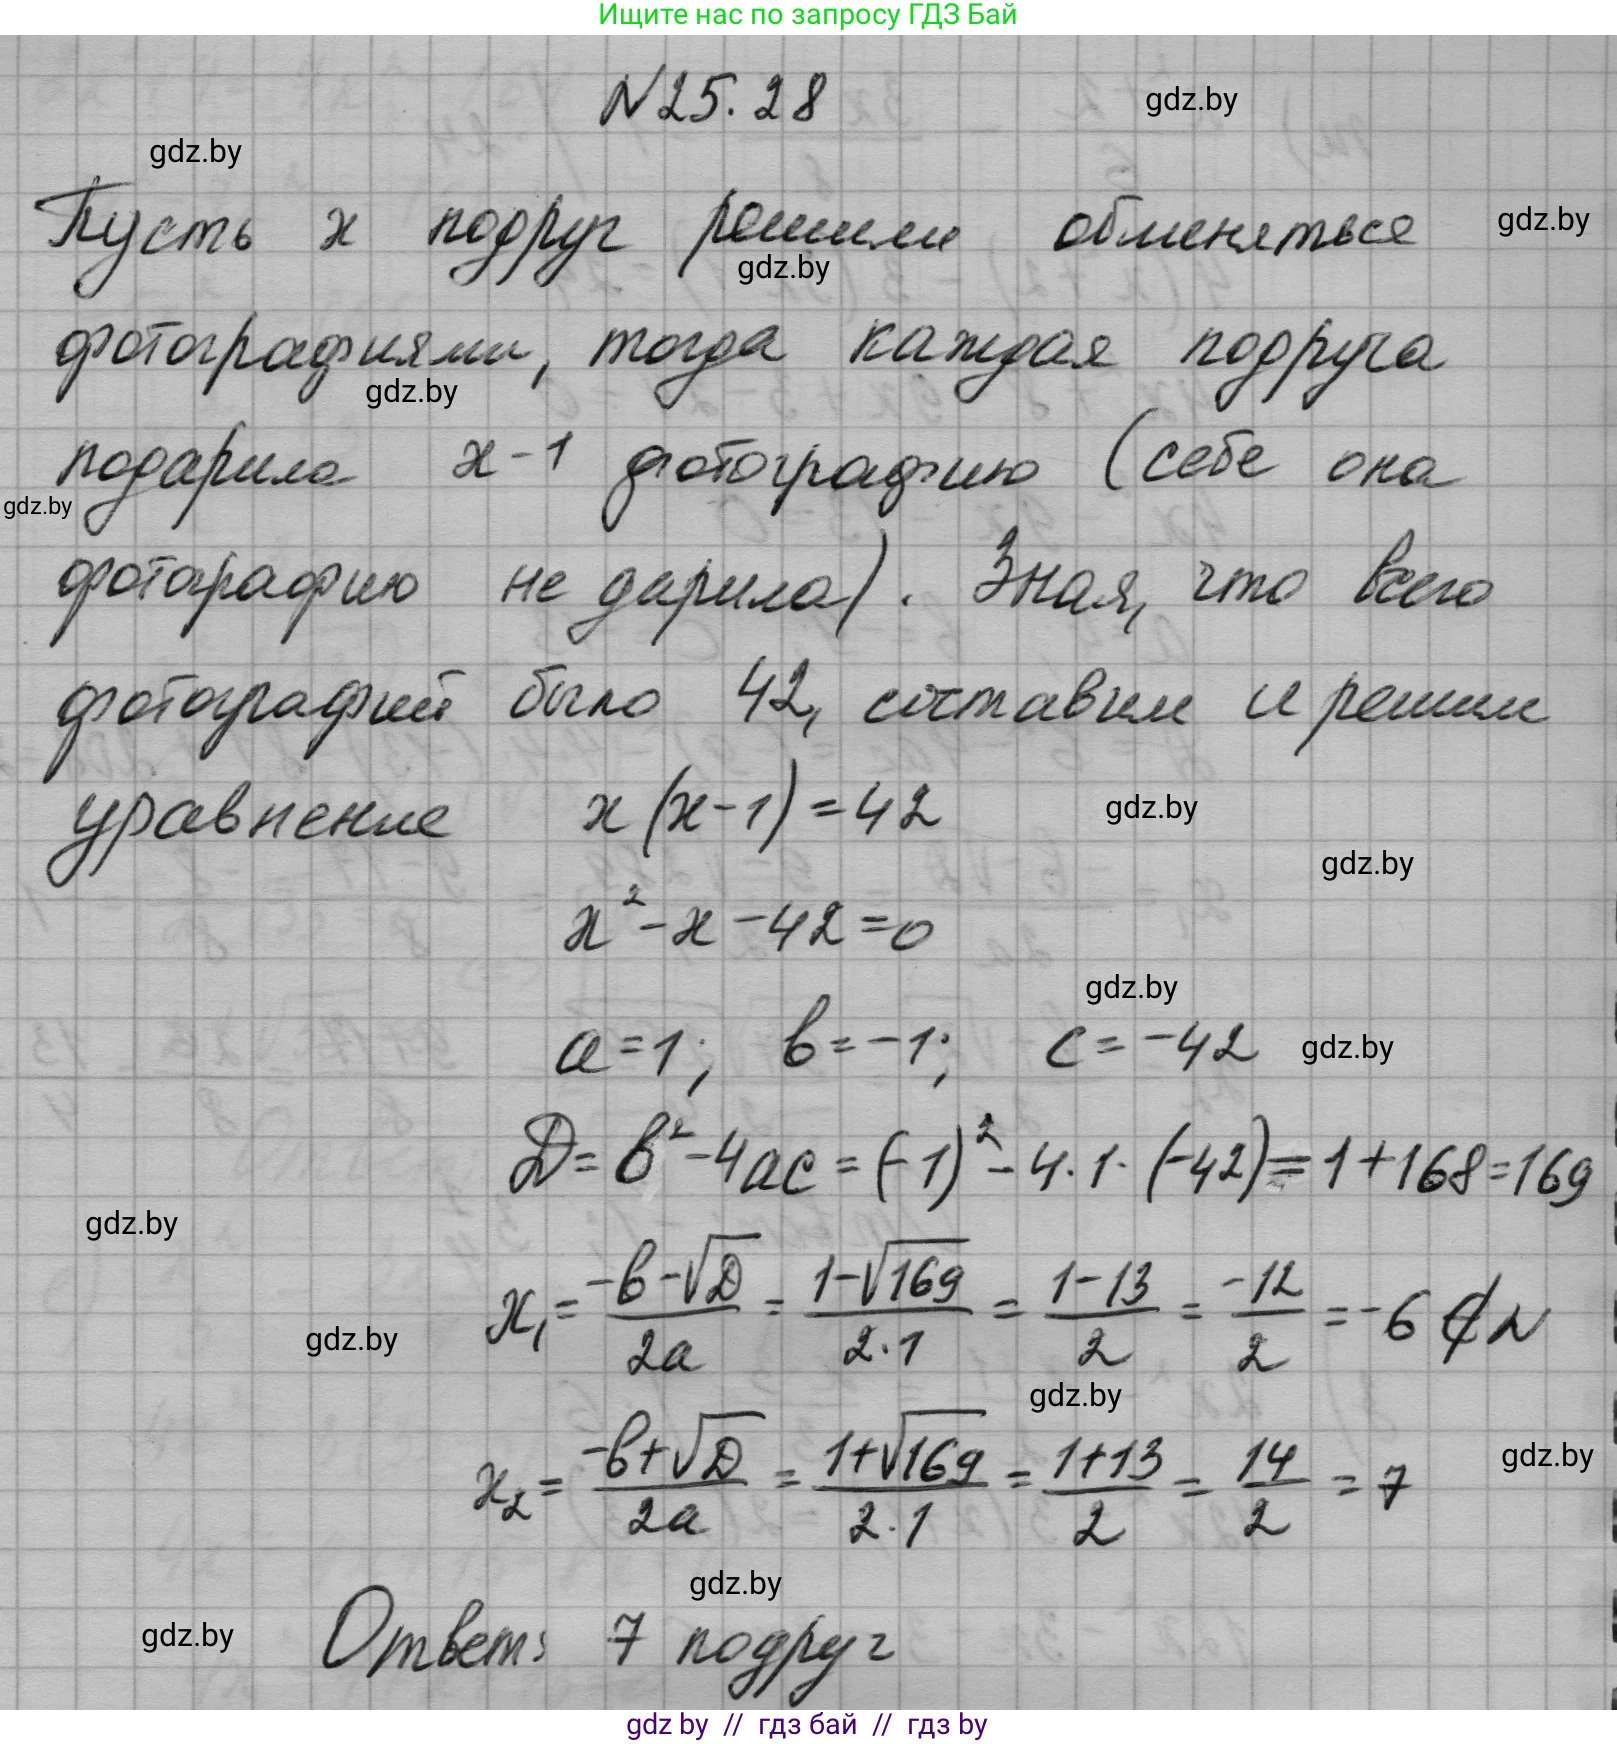 Ищите нас по запросу ГДЗ Бай
N25.28
gdz.by
gdz.by
Пусть x подруг решили обменяться
gdz.by
gdz.by
фотографиями, тогда каждая подруга
gdz.by
подарила x-1 фотографию (себе она
gdz.by
фотографию не дарила). Зная, что всего
фотографий было 42, составим и решим
уравнение x(x-1)=42
gdz.by
gdz.by
x²-x-42=0
gdz.by
a=1; b=-1; c=-42
gdz.by
D=b²-4ac=(-1)²-4·1·(-42)=1+168=169
gdz.by
x₁=(-b-√D)/(2a)=(1-√169)/(2·1)=(1-13)/2=(-12)/2=-6∉N
gdz.by
gdz.by
x₂=(-b+√D)/(2a)=(1+√169)/(2·1)=(1+13)/2=14/2=7
gdz.by
gdz.by
Ответ: 7 подруг
gdz.by
gdz by // гдз бай // гдз by